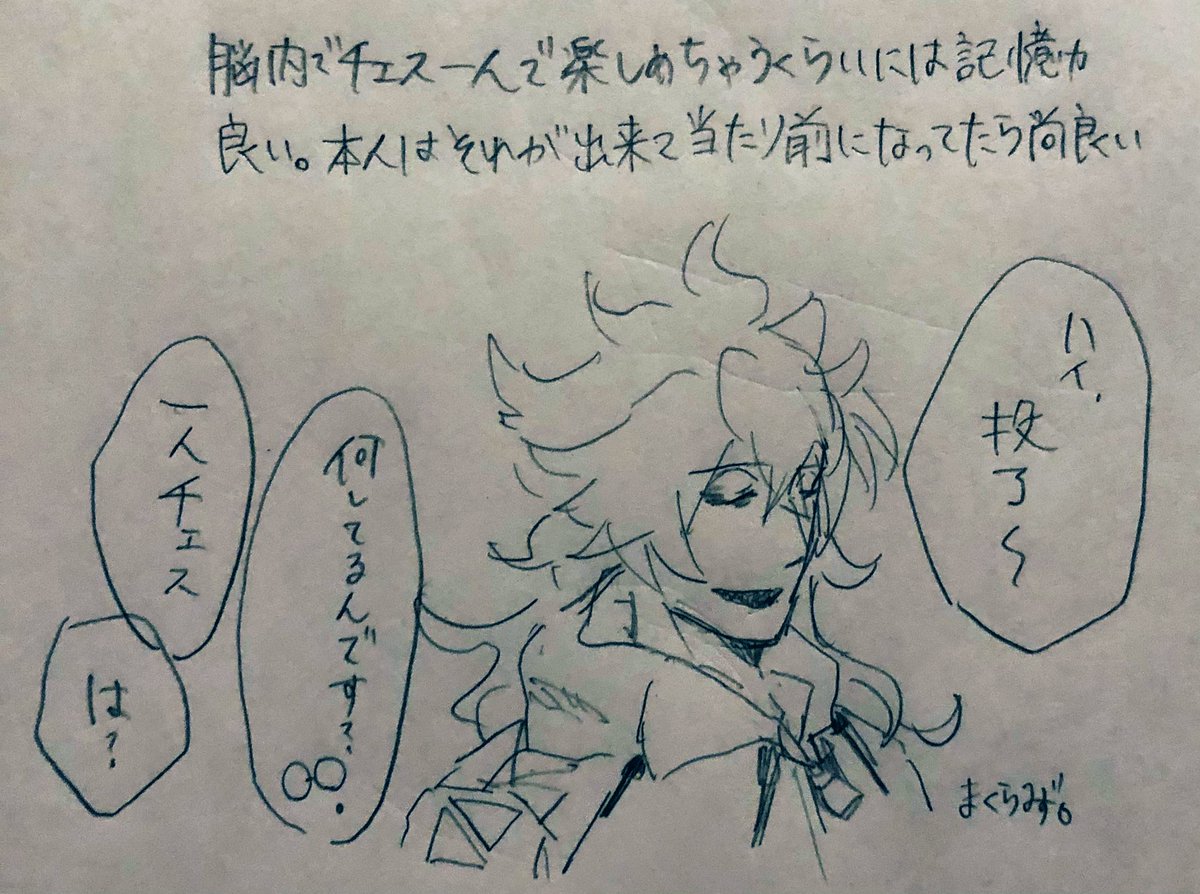 脳内でチェス一人で楽しめちゃうくらいには記憶力
良い。本人はそれが出来て当たり前になってたら尚良い
ハイ、
投了～
何してるんです?
○○。
一人チェス
は?
まくらみず。